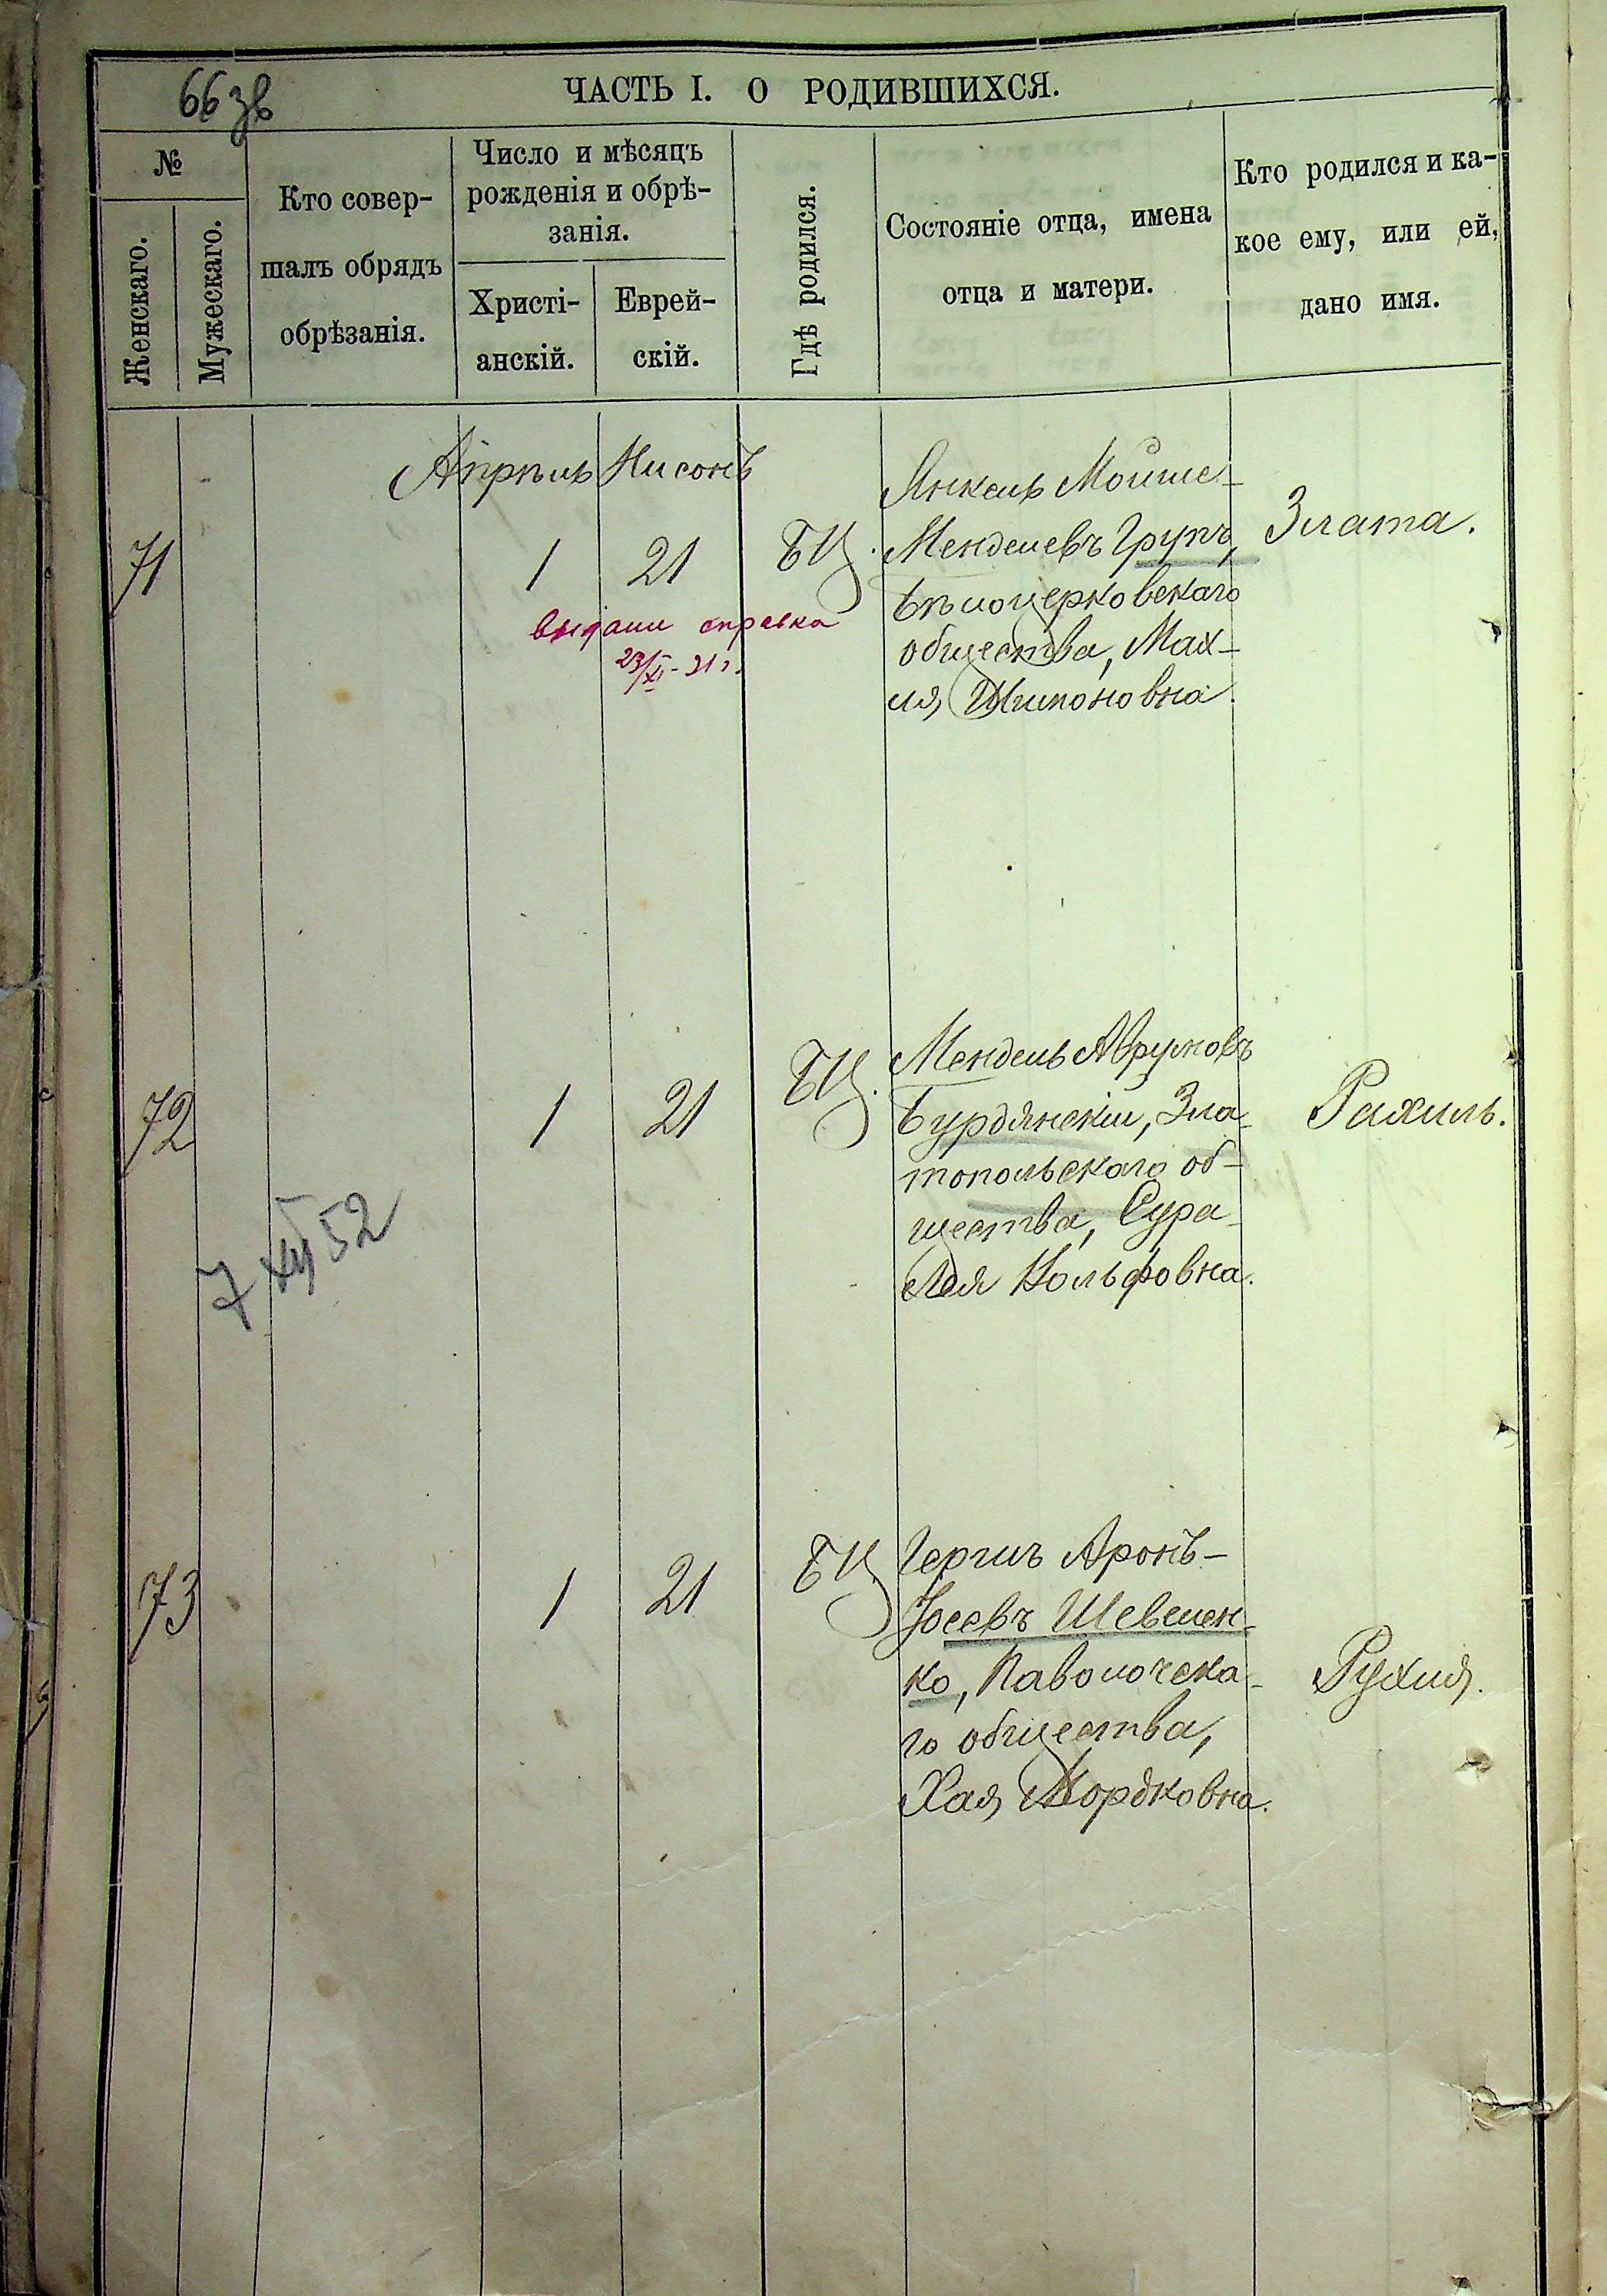 66 зв
ЧАСТЬ I. О РОДИВШИХСЯ.
№
Женскаго.
Мужескаго.
Кто совер-
шалъ обрядъ
обрѣзанія.
Число и мѣсяцъ
рожденія и обрѣ-
занія.
Христі-
анскій.
Еврей-
скій.
Гдѣ родился.
Состояніе отца, имена
отца и матери.
Кто родился и ка-
кое ему, или ей,
дано имя.
Апрѣль Нисонъ
71
1
21
БЦ.
Янкель Мойше-
Менделевъ Групъ,
Бѣлоцерковскаго
общества, Мах-
ля Шимоновна.
Злата.
выдали справка
23/XII-31 г.
72
1
21
БЦ.
Мендель Аврумовъ
Бурдянскій, Зла-
топольскаго об-
щества, Сура-
Лея Вольфовна.
Рахиль.
7 XII 52
73
1
21
БЦ
Гершъ Аронъ-
Іосевъ Шевелен-
ко, Паволочска-
го общества,
Хая Мордковна.
Рухля.